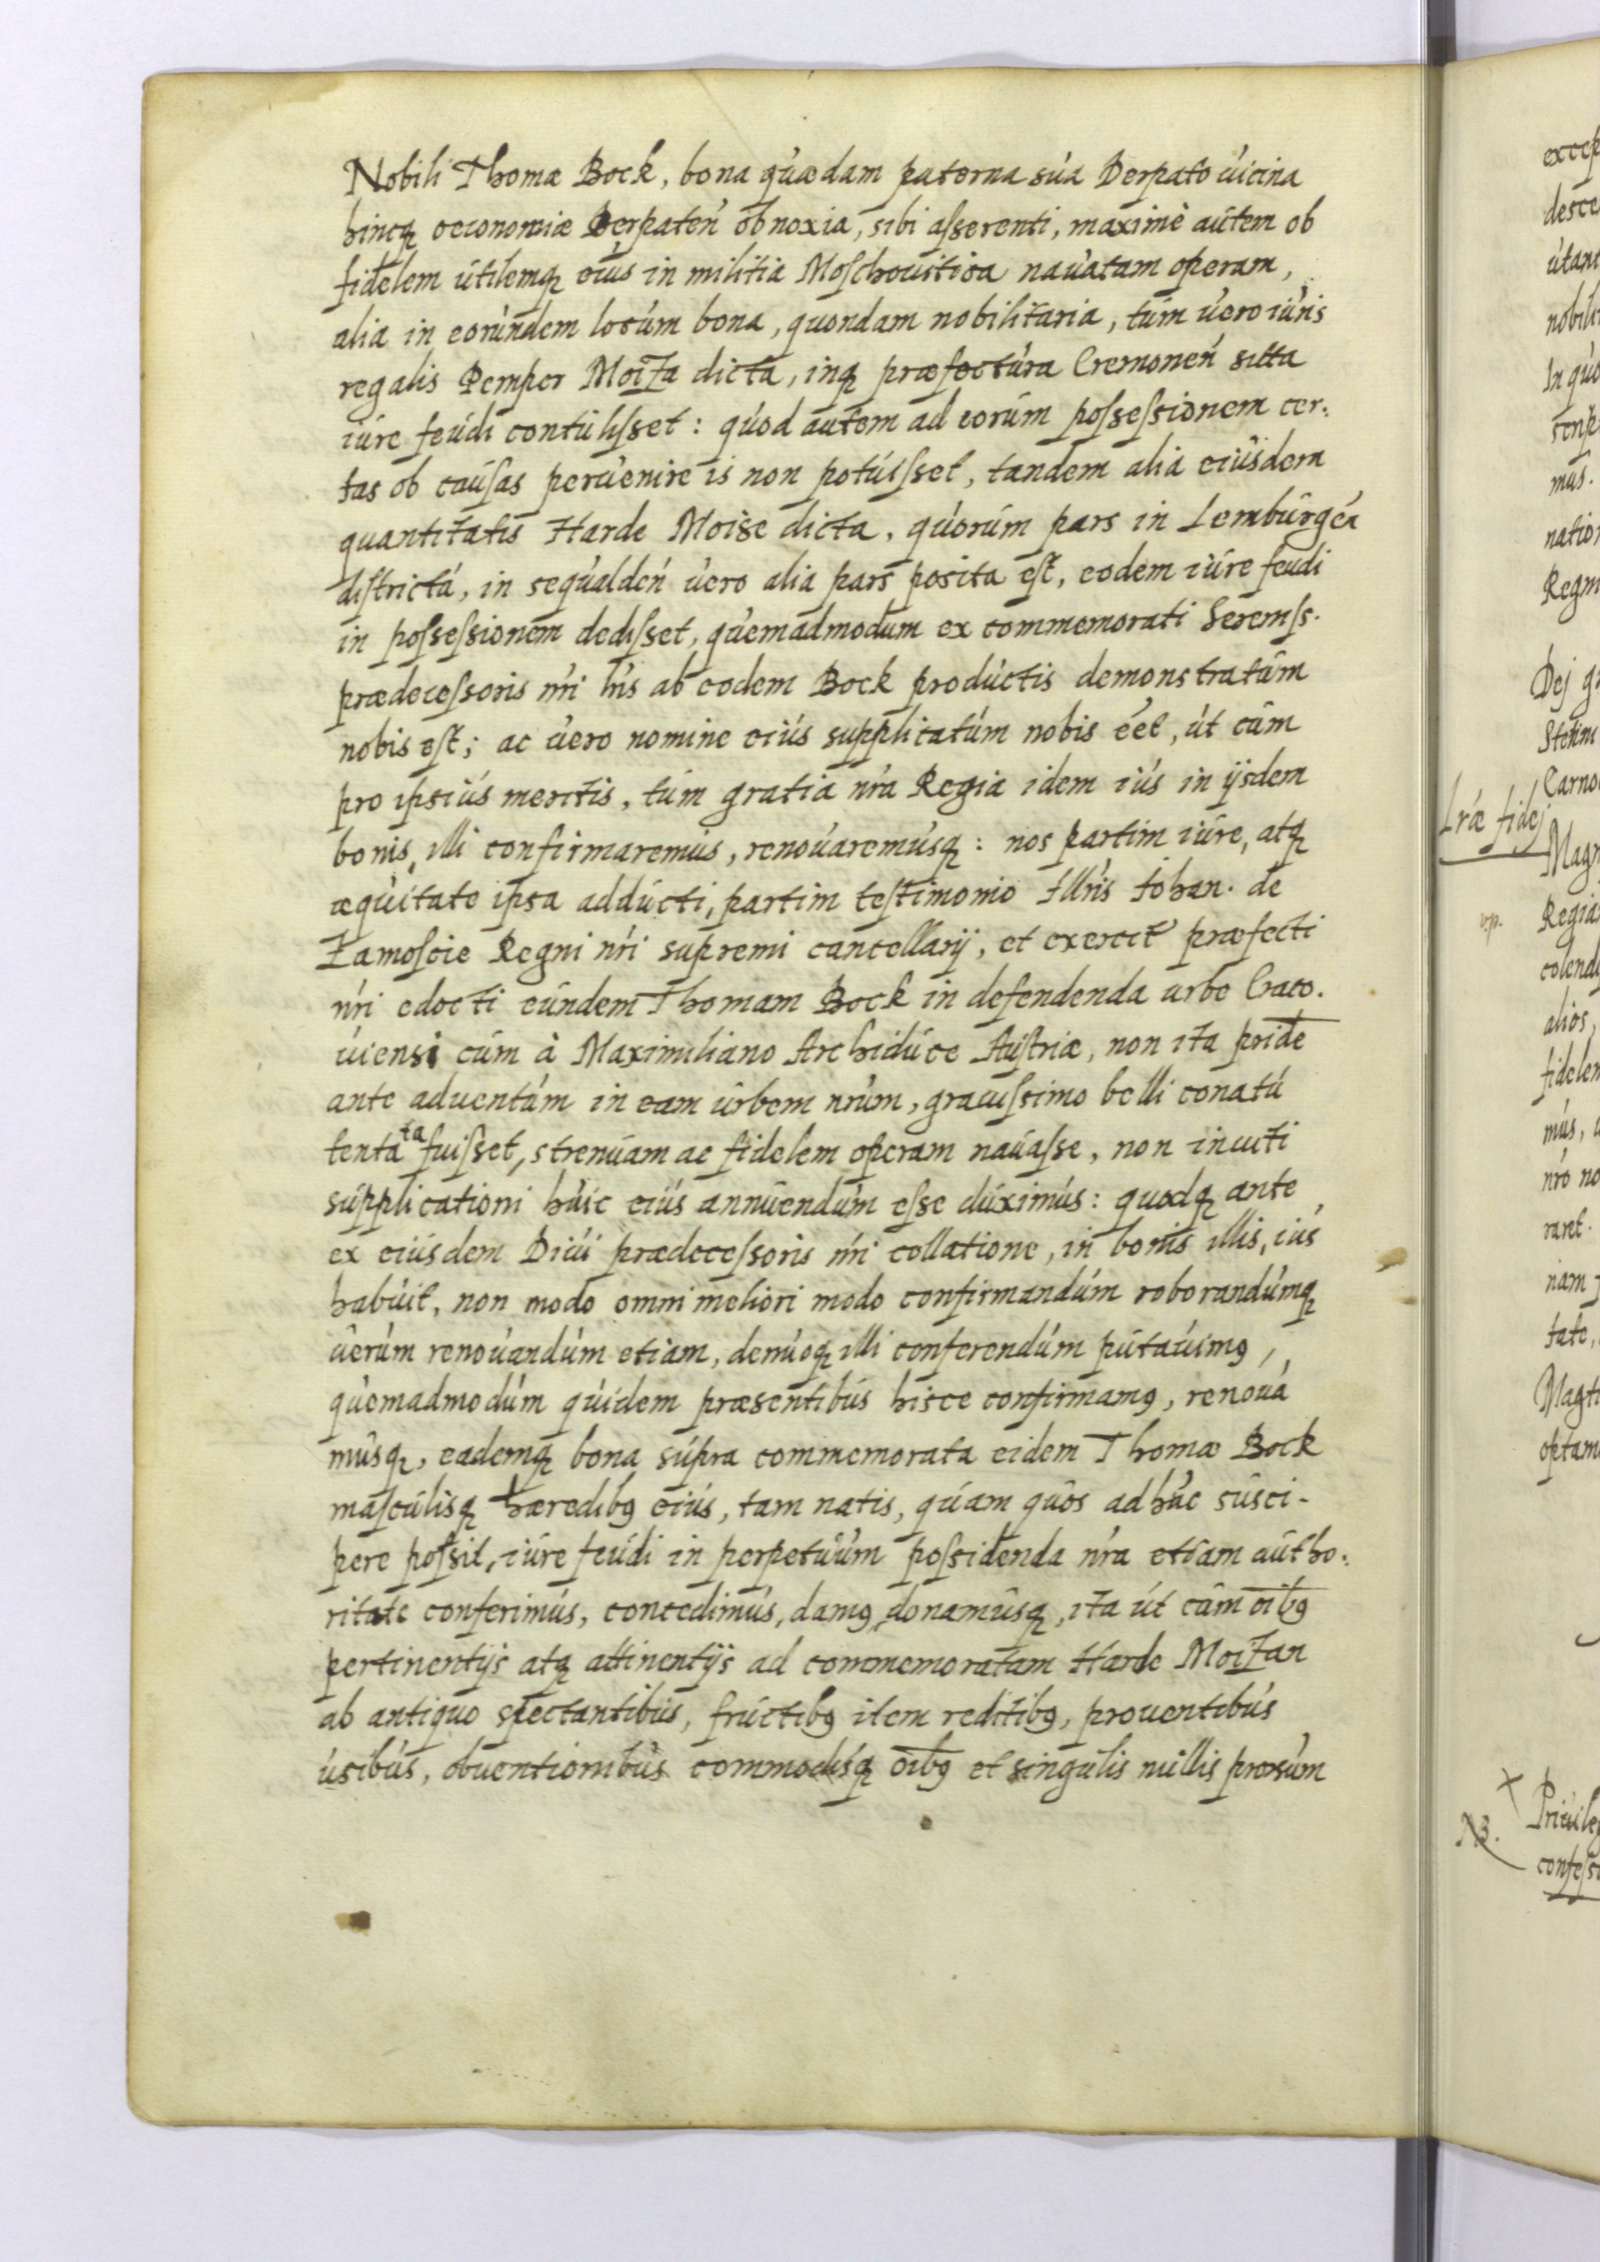 Nobili Thomæ Bock, bona quædam paterna sua Derpato uicina
hincq; oeconomiæ Derpateń obnoxia, sibi aſserenti, maximè autem ob
fidelem utilemq; eius in militia Moſchouitica nauatam operam,
alia in eorundem locum bona, quondam nobilitaria, tum uero iuris
regalis Pemper Moiza dicta, inq; præfectura Cremoneń sitta
iure feudi contuliſset: quod autem ad eorum poſseſsionem cer:
tas ob cauſas peruenire is non potuiſset, tandem alia eiusdem
quantitatis Harde Moise dicta, quorum pars in Lemburgeń
diſtrictu, in sequaldeń uero alia pars posita eſt, eodem iure feudi
in poſseſsionem dediſset, quemadmodum ex commemorati Sereniſs.
prædeceſsoris nŕi lŕis ab eodem Bock productis demonstratum
nobis eſt; ac uero nomine eius supplicatum nobis eét, ut cum
pro ipsius meritis, tum gratia nŕa Regia idem ius in ijsdem
bonis, illi confirmaremus, renouaremusq; : nos partim iure, atq;
æquitate ipsa adducti, partim teſtimonio Illŕis Iohan. de
Zamoſcie Regni nŕi supremi cancellarij, et exercit præfecti
nŕi edocti eundem Thomam Bock in defendenda urbe Craco.
uiensi cum à Maximiliano Archiduce Auſtriæ, non ita pridē
ante aduentum in eam urbem nŕum, grauiſsimo belli conatu
tentata fuiſset, strenuam ac fidelem operam nauaſse, non inuiti
supplicationi huic eius annuendum eſse duximus: quodq; ante
ex eiusdem Diui prædeceſsoris nŕi collatione, in bonis illis, ius
habuit, non modo omni meliori modo confirmandum roborandumq;
uerum renouandum etiam, denuoq; illi conferendum putauimꝰ,
quemadmodum quidem præsentibus hisce confirmamꝰ, renoua
musq;, eademq; bona supra commemorata eidem Thomæ Bock
maſculisq; hæredibꝰ eius, tam natis, quam quos adhuc susci-
pere poſsit, iure feudi in perpetuum poſsidenda nŕa etiam autho:
ritate conferimus, concedimus, damꝰ, donamusq;, ita ut cum oībꝰ
pertinentijs atq; attinentijs ad commemoratam Harde Moizan
ab antiquo spectantibus, fructibꝰ item reditibꝰ, prouentibus
usibus, obuentionibus commodisq; oībꝰ et singulis nullis prorsum
Lŕæ fidej
NB.